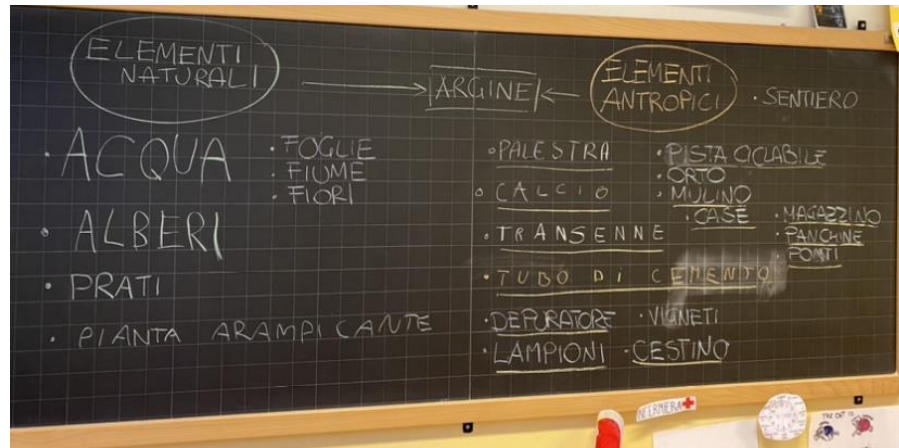 ELEMENTI
NATURALI
ARGINE
ELEMENTI
ANTROPICI
• SENTIERO
• ACQUA
• ALBERI
• PRATI
• PIANTA ARAMPICANTE
• FOGLIE
• FIUME
• FIORI
• PALESTRA
• CALCIO
• TRANSENNE
• TUBO DI CEMENTO
• DEPURATORE
• LAMPIONI
• PISTA CICLABILE
• ORTO
• MULINO
• CASE
• MAGAZZINO
• PANCHINE
• PONTI
• VIGNETI
• CESTINO
INFERMERIA